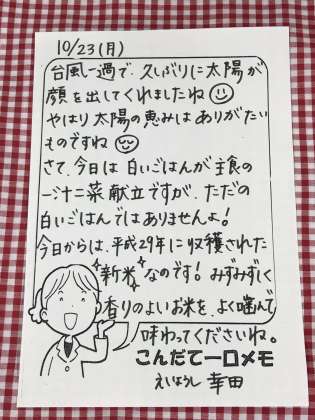 10/23(月)
台風一過で、久しぶりに太陽が
顔を出してくれましたね
やはり太陽の恵みはありがたい
ものですね
さて、今日は白いごはんが主食の
一汁二菜献立ですが、ただの
白いごはんではありませんよ!
今日からは、平成29年に収穫された
"新米"なのです!みずみずしく
香りのよいお米を、よく噛んで
味わってくださいね。
こんだて一口メモ
えいようし 幸田